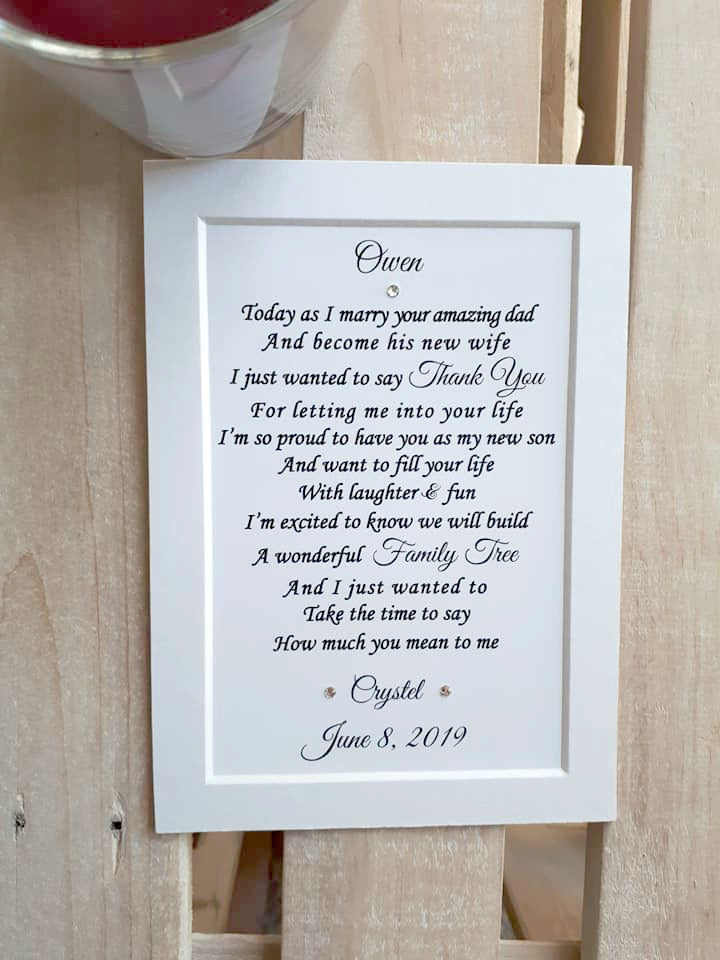 Owen
Today as I marry your amazing dad
And become his new wife
I just wanted to say Thank You
For letting me into your life
I'm so proud to have you as my new son
And want to fill your life
With laughter & fun
I'm excited to know we will build
A wonderful Family Tree
And I just wanted to
Take the time to say
How much you mean to me
Crystel
June 8, 2019